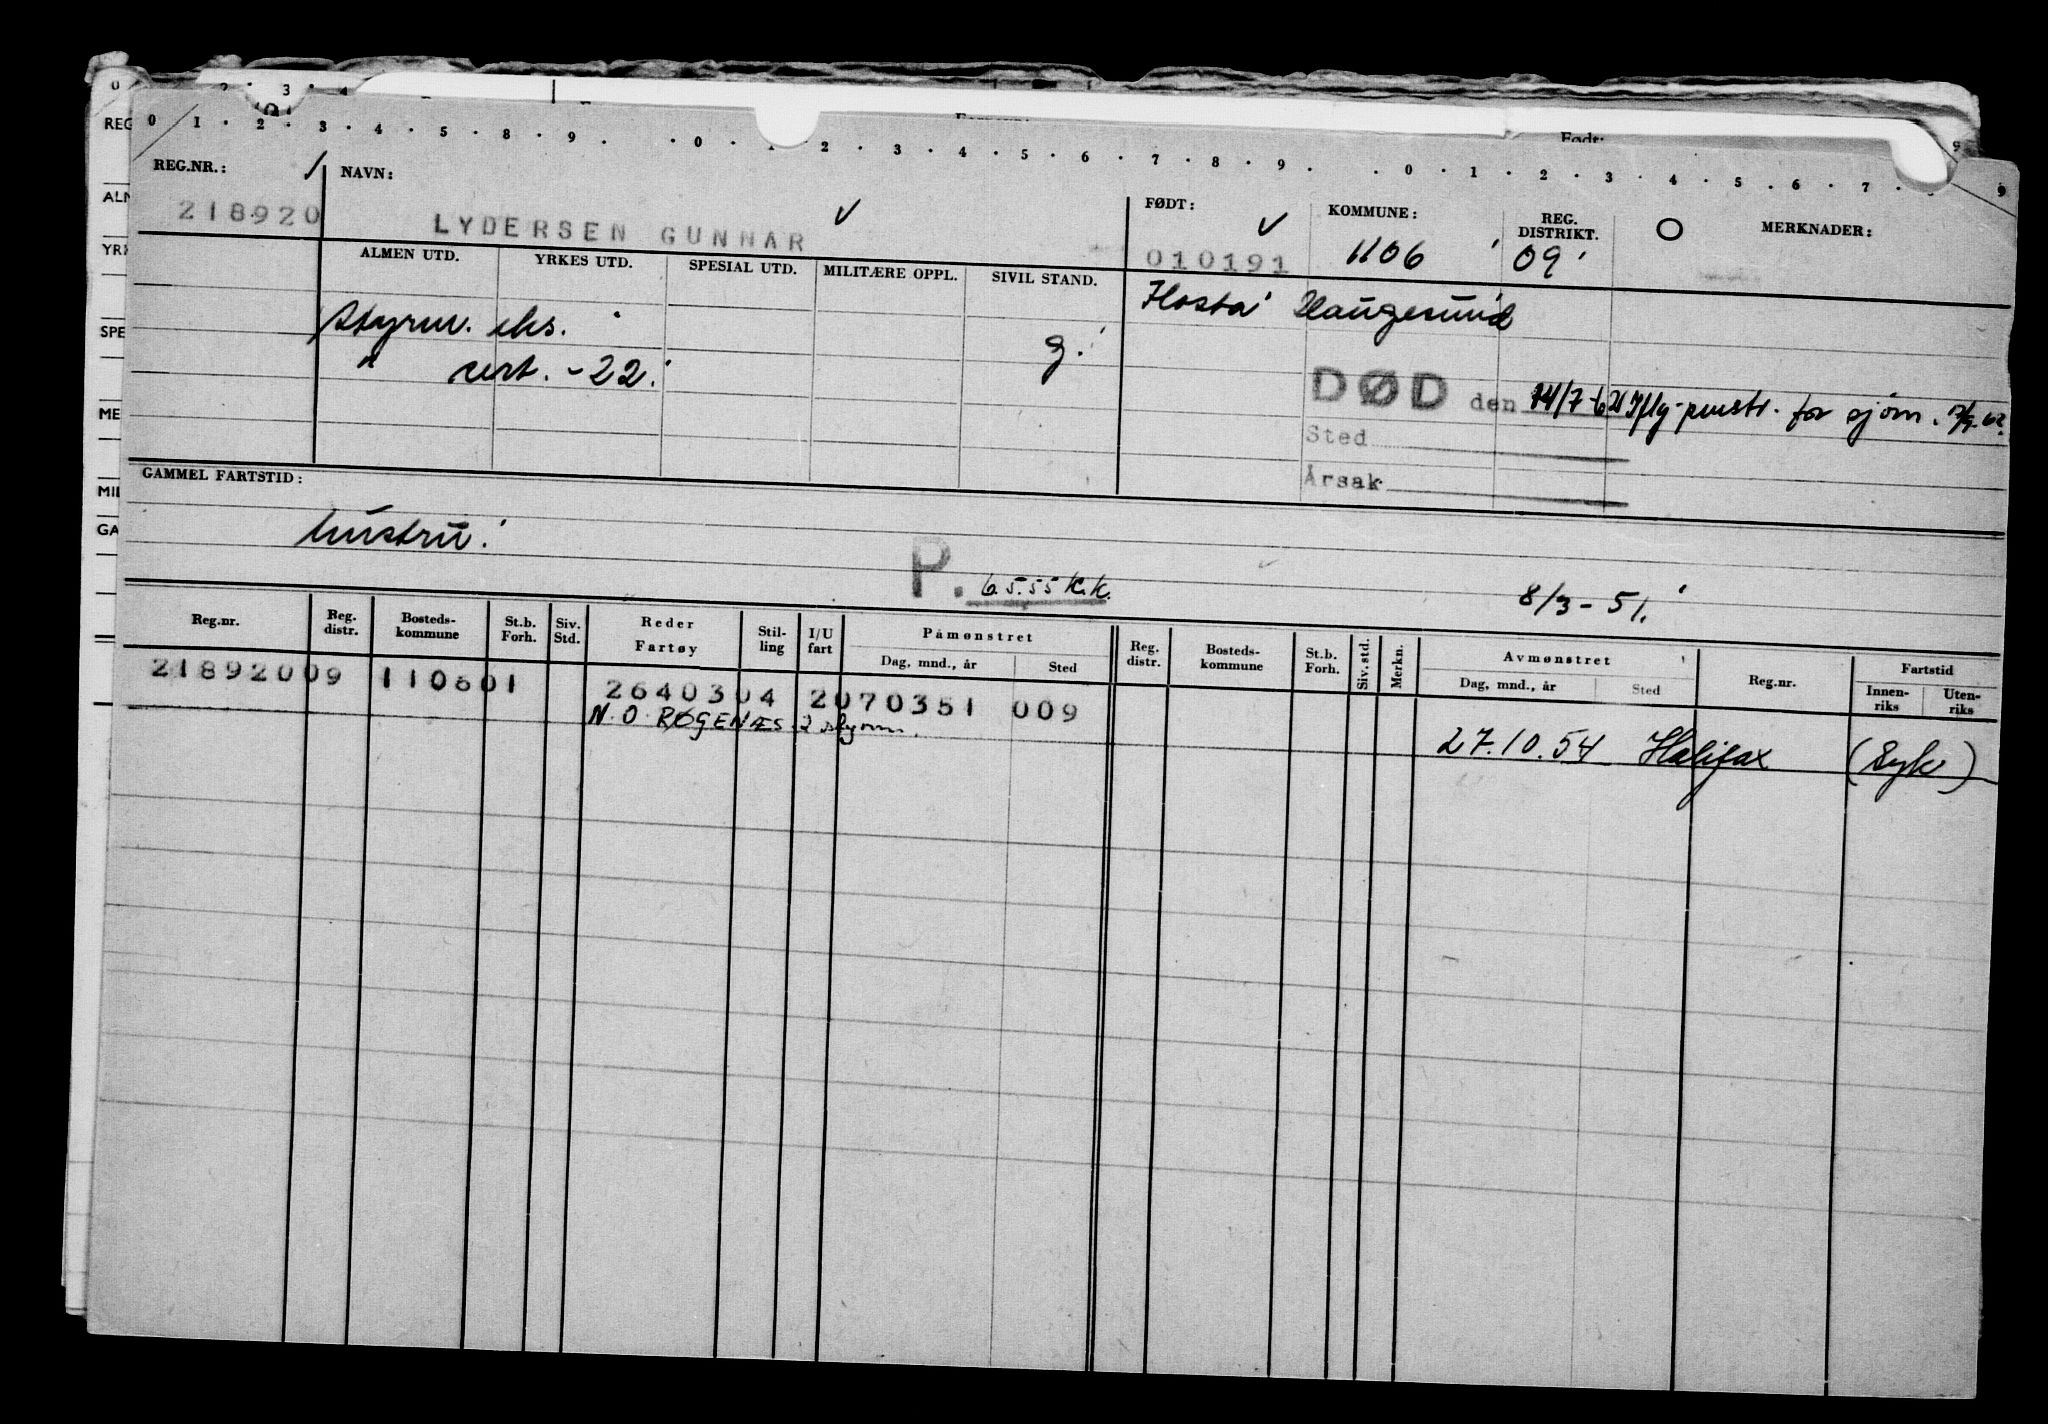 0 1 2 3 4 5 8 9 0 2 3 4 5 6 7 8 9 0 1 2 3 4 5 6 7 9
REG.NR.: NAVN: FØDT: KOMMUNE: REG. DISTRIKT. MERKNADER:
218920 LYDERSEN GUNNAR 010191 1106 09
ALMEN UTD. YRKES UTD. SPESIAL UTD. MILITÆRE OPPL. SIVIL STAND.
Styrm. eks. g. Haugesund
" sert. -22.
DØD den 14/7-62 Iflg. for sjøm.
Sted
Årsak
GAMMEL FARTSTID:
hustru.
P. 6.5.55 K.K.
8/3-51.
Reg.nr. Reg. distr. Bosteds-kommune St.b. Forh. Siv. Std. Reder Fartøy Stil-ling I/U fart Påmønstret Dag, mnd., år Sted Reg. distr. Bosteds-kommune St.b. Forh. Siv. std. Merkn. Avmønstret Dag, mnd., år Sted Reg.nr. Fartstid Innen-riks Uten-riks
21892009 110601 2640304 2070351 009
N.O. RØGENÆS 2 styrm.
27.10.54 Halifax (Syk)